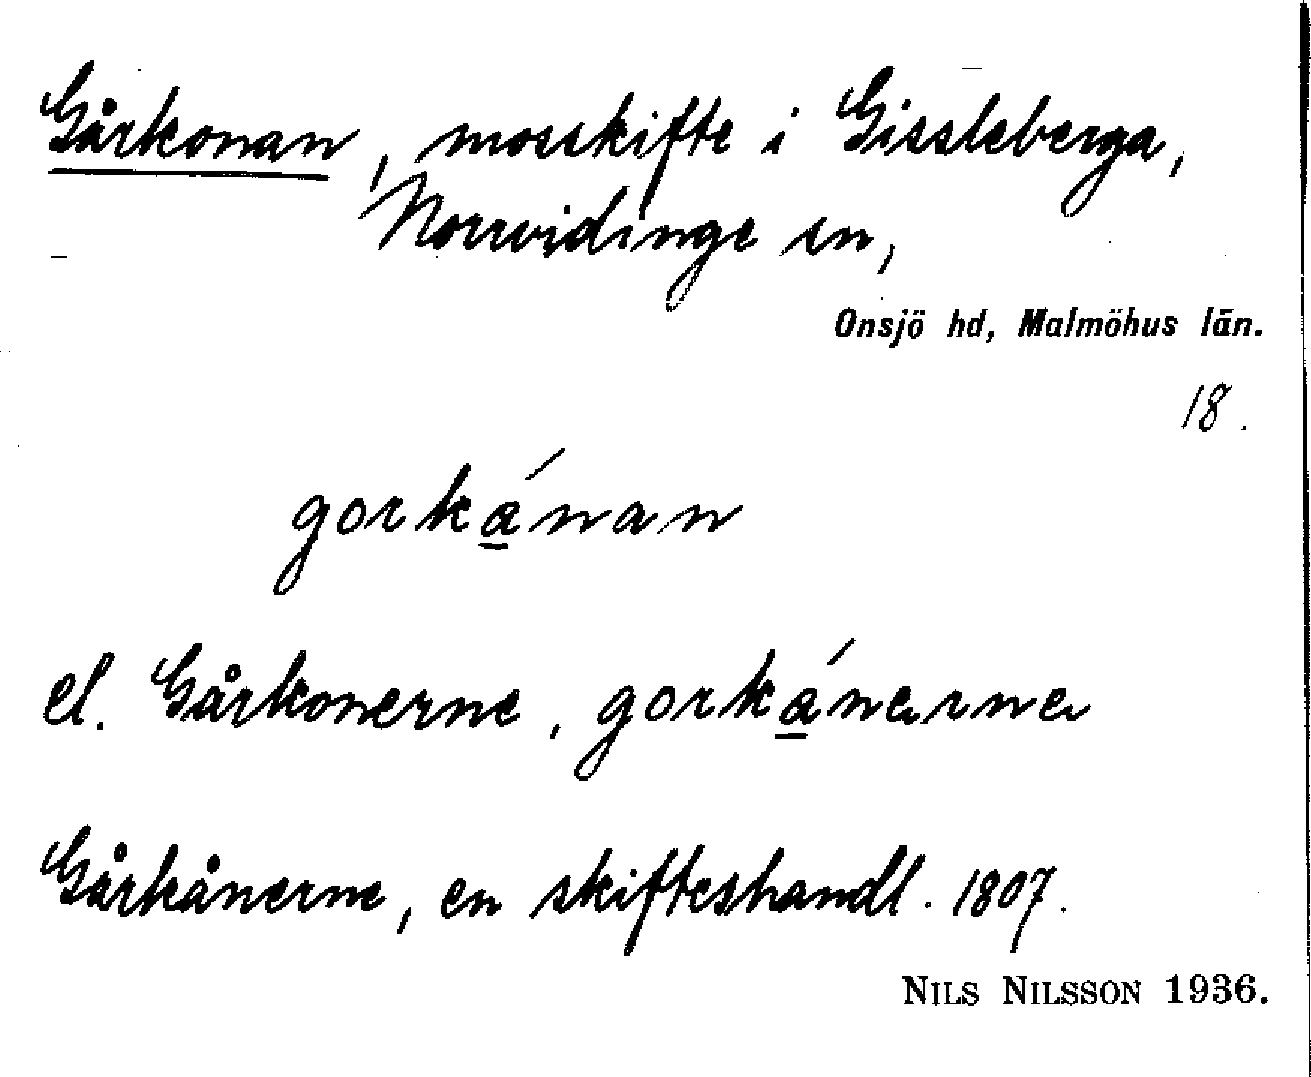 Gårkonan, mosskifte i Gissleberga,
Norrvidinge sn,
Onsjö hd, Malmöhus län.
18.
gorká̱nan
el. Gårkonerne, gorká̱nærnæ
Gårkånerne, en skifteshandl. 1807.
NILS NILSSON 1936.